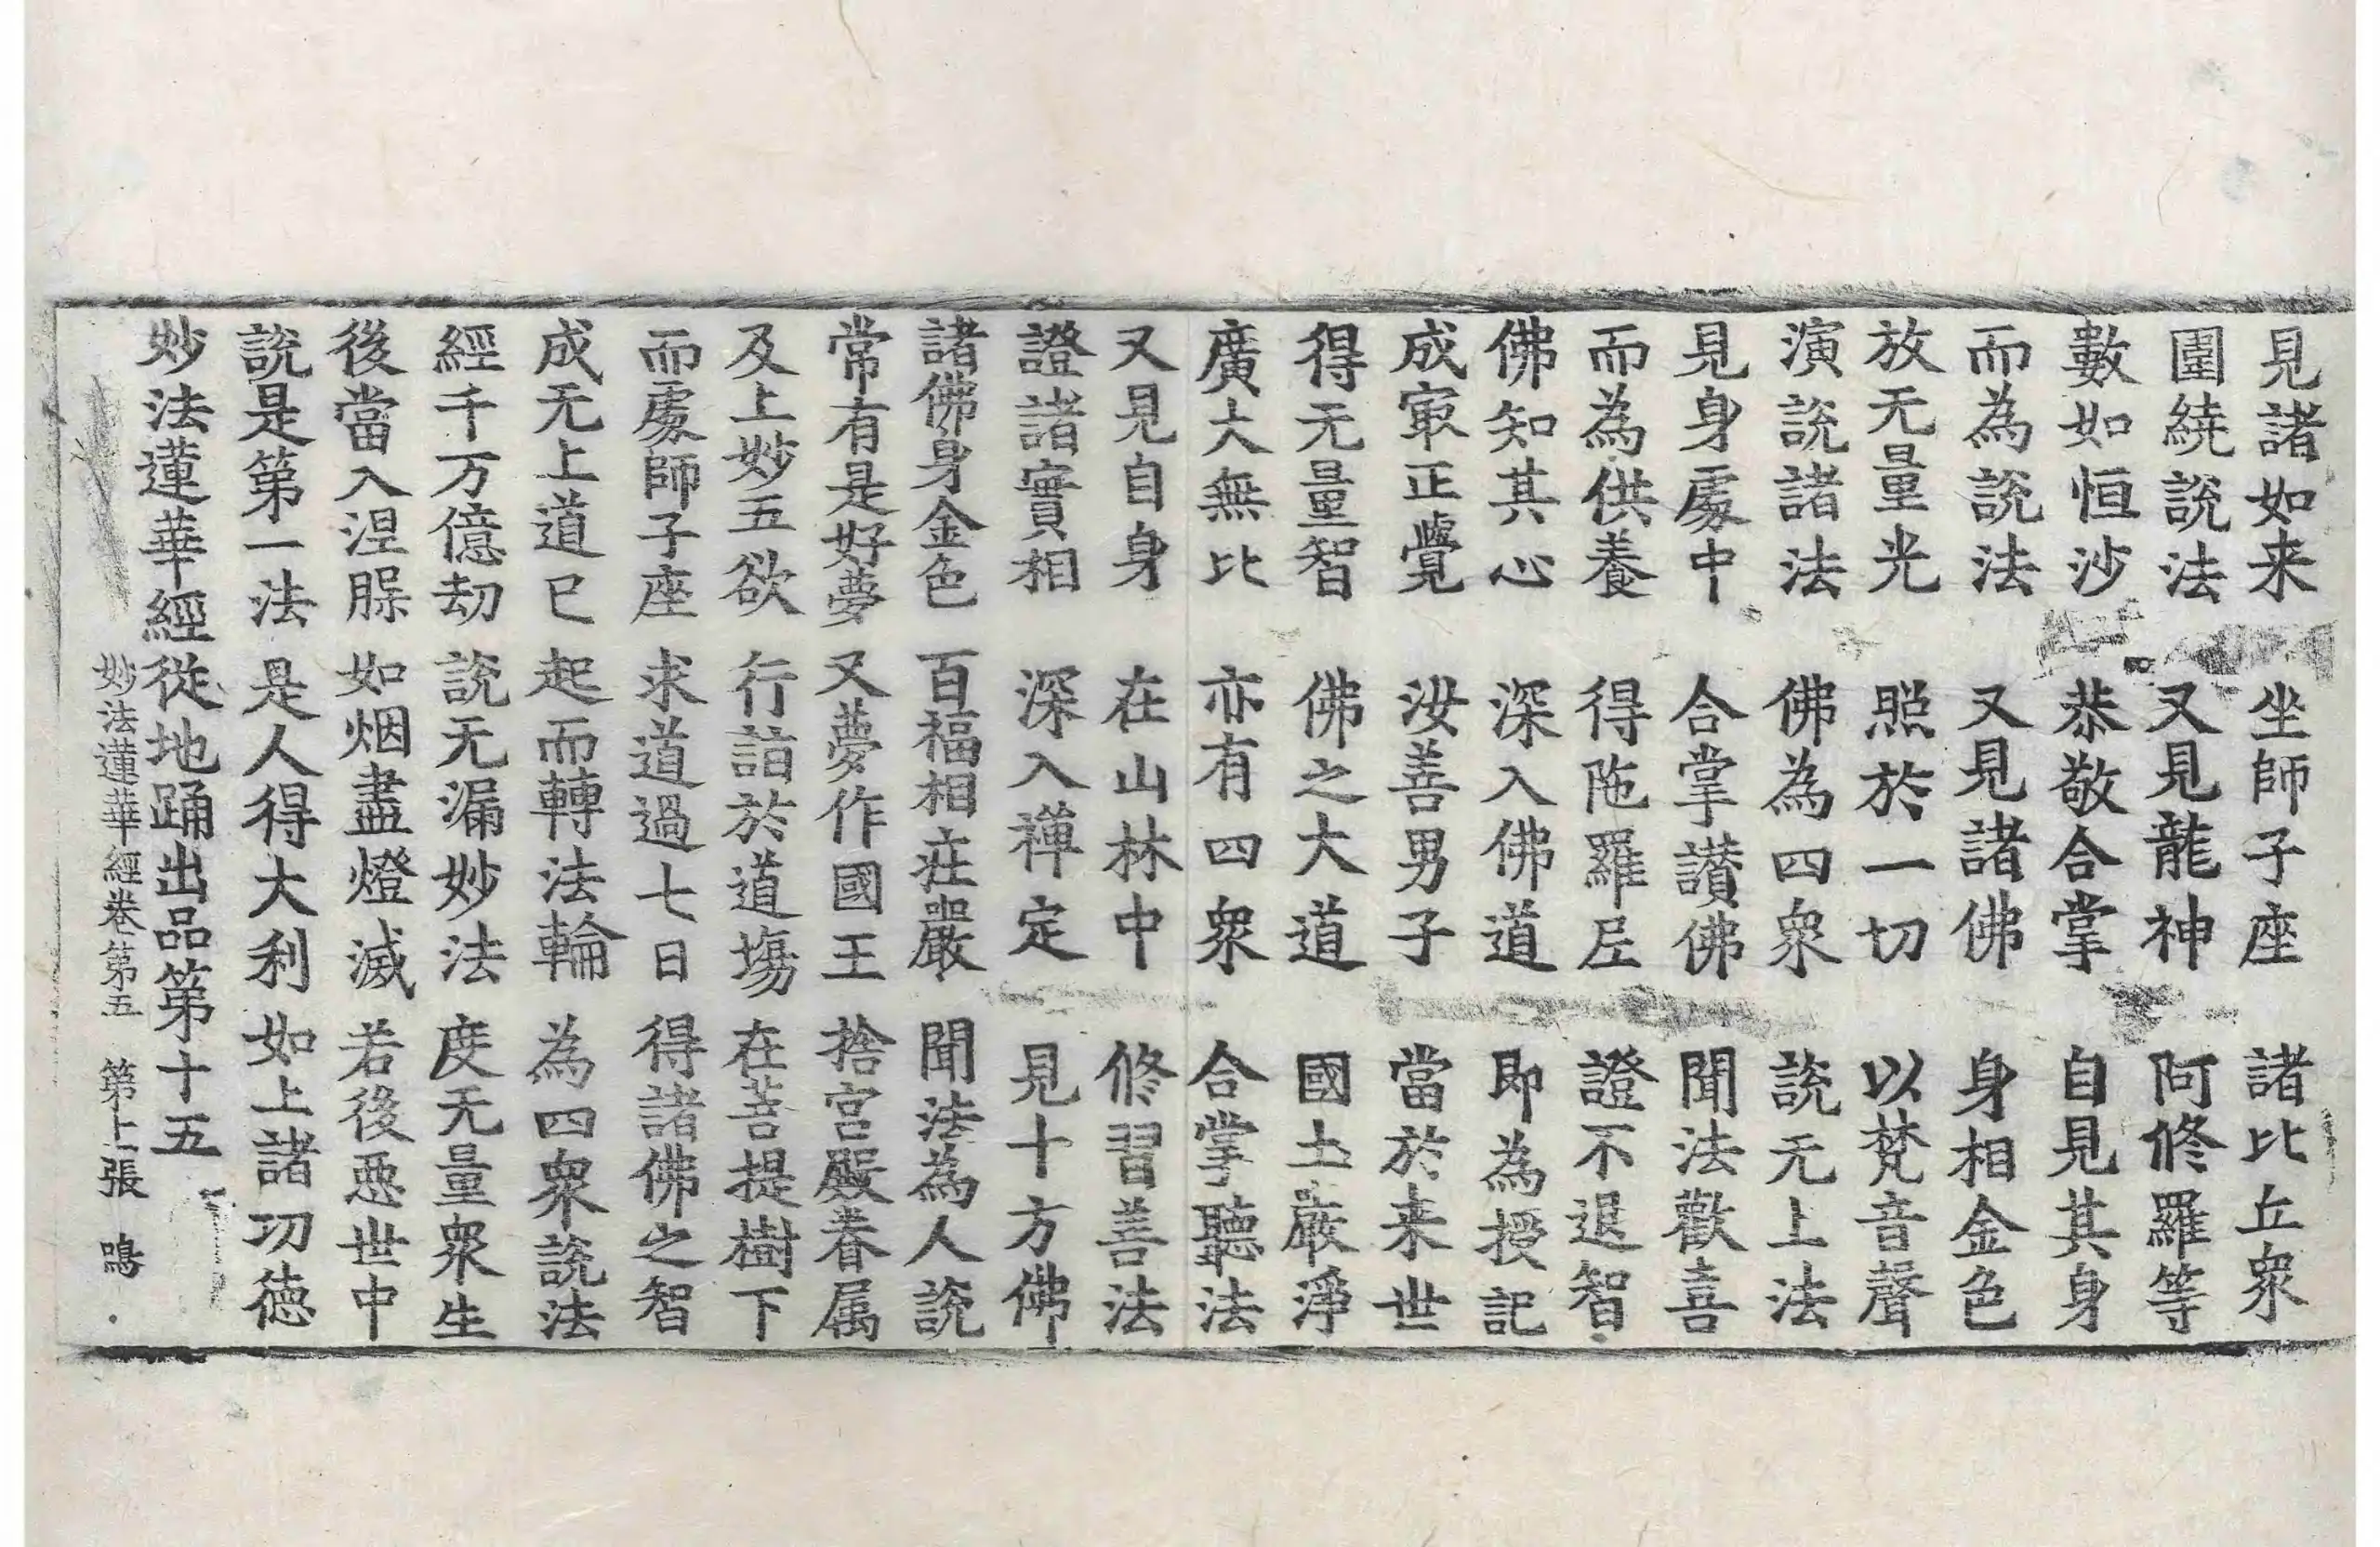 見諸如来　坐師子座　諸比丘衆
圍繞說法　又見龍神　阿修羅等
數如恒沙　恭敬合掌　自見其身
而為說法　又見諸佛　身相金色
放无量光　照於一切　以梵音聲
演說諸法　佛為四衆　說无上法
見身處中　合掌讃佛　聞法歡喜
而為供養　得陁羅尼　證不退智
佛知其心　深入佛道　即為授記
成㝡正覺　汝善男子　當於来世
得无量智　佛之大道　國土嚴淨
廣大無比　亦有四衆　合掌聽法
又見自身　在山林中　修習善法
證諸實相　深入禪定　見十方佛
諸佛身金色　百福相莊嚴　聞法為人說
常有是好夢　又夢作國王　捨宮殿眷属
及上妙五欲　行詣於道場　在菩提樹下
而處師子座　求道過七日　得諸佛之智
成无上道已　起而轉法輪　為四衆說法
經千万億劫　說无漏妙法　度无量衆生
後當入涅槃　如烟盡燈滅　若後惡世中
說是第一法　是人得大利　如上諸功德
妙法蓮華經從地踊出品第十五
妙法蓮華經卷第五　第上張　鳴